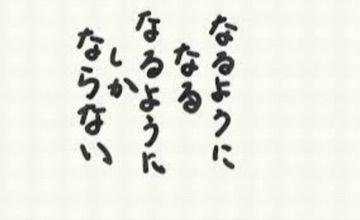 なるように
なる
なるように
しか
ならない